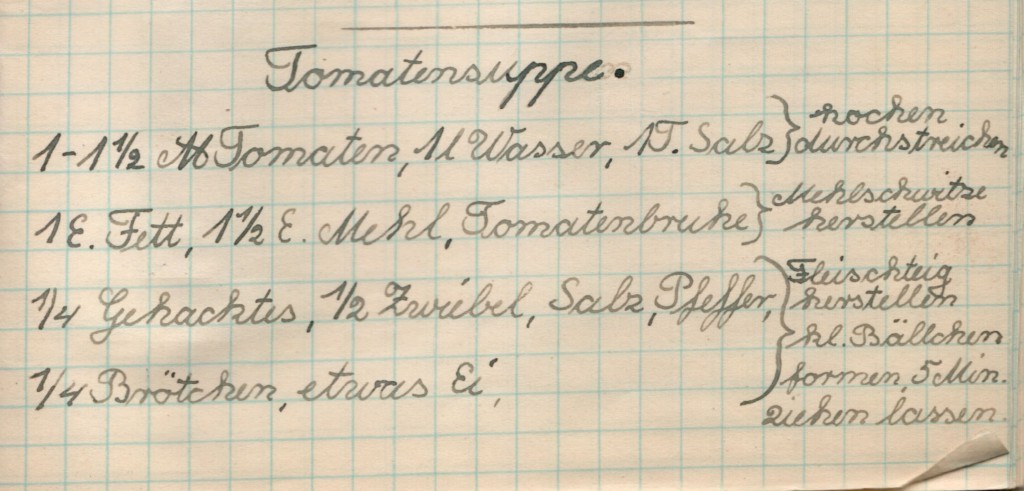 Tomatensuppe.
1-1½ ℔ Tomaten, 1 l Wasser, 1 T. Salz } kochen
durchstreichen
1 E. Fett, 1½ E. Mehl, Tomatenbrühe } Mehlschwitze
herstellen
1/4 Gehacktes, 1/2 Zwiebel, Salz, Pfeffer, } Fleischteig
herstellen
kl. Bällchen
1/4 Brötchen, etwas Ei, formen, 5 Min.
ziehen lassen.